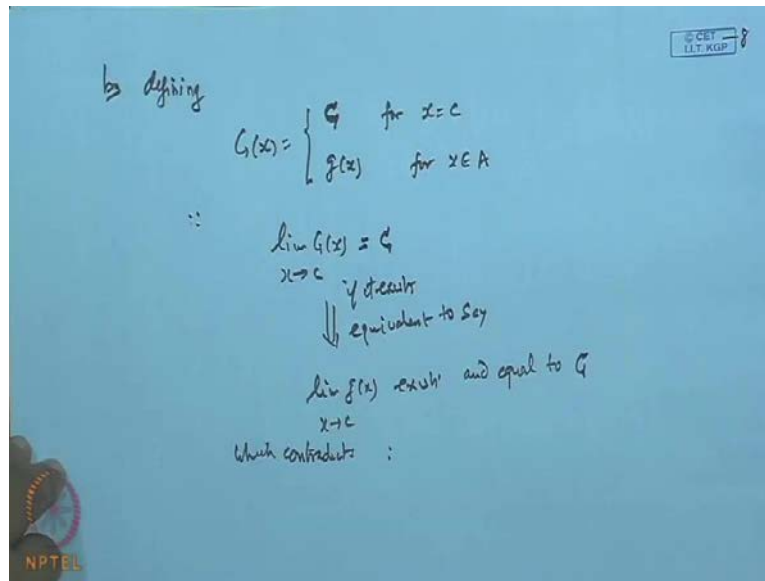 © CET
I.I.T. KGP
8
by defining
G(x) = { G for x = c
g(x) for x ∈ A
∵
lim G(x) = G
x→c
if it exists
⇓ equivalent to say
lim g(x) exists and equal to G
x→c
which contradicts :
NPTEL